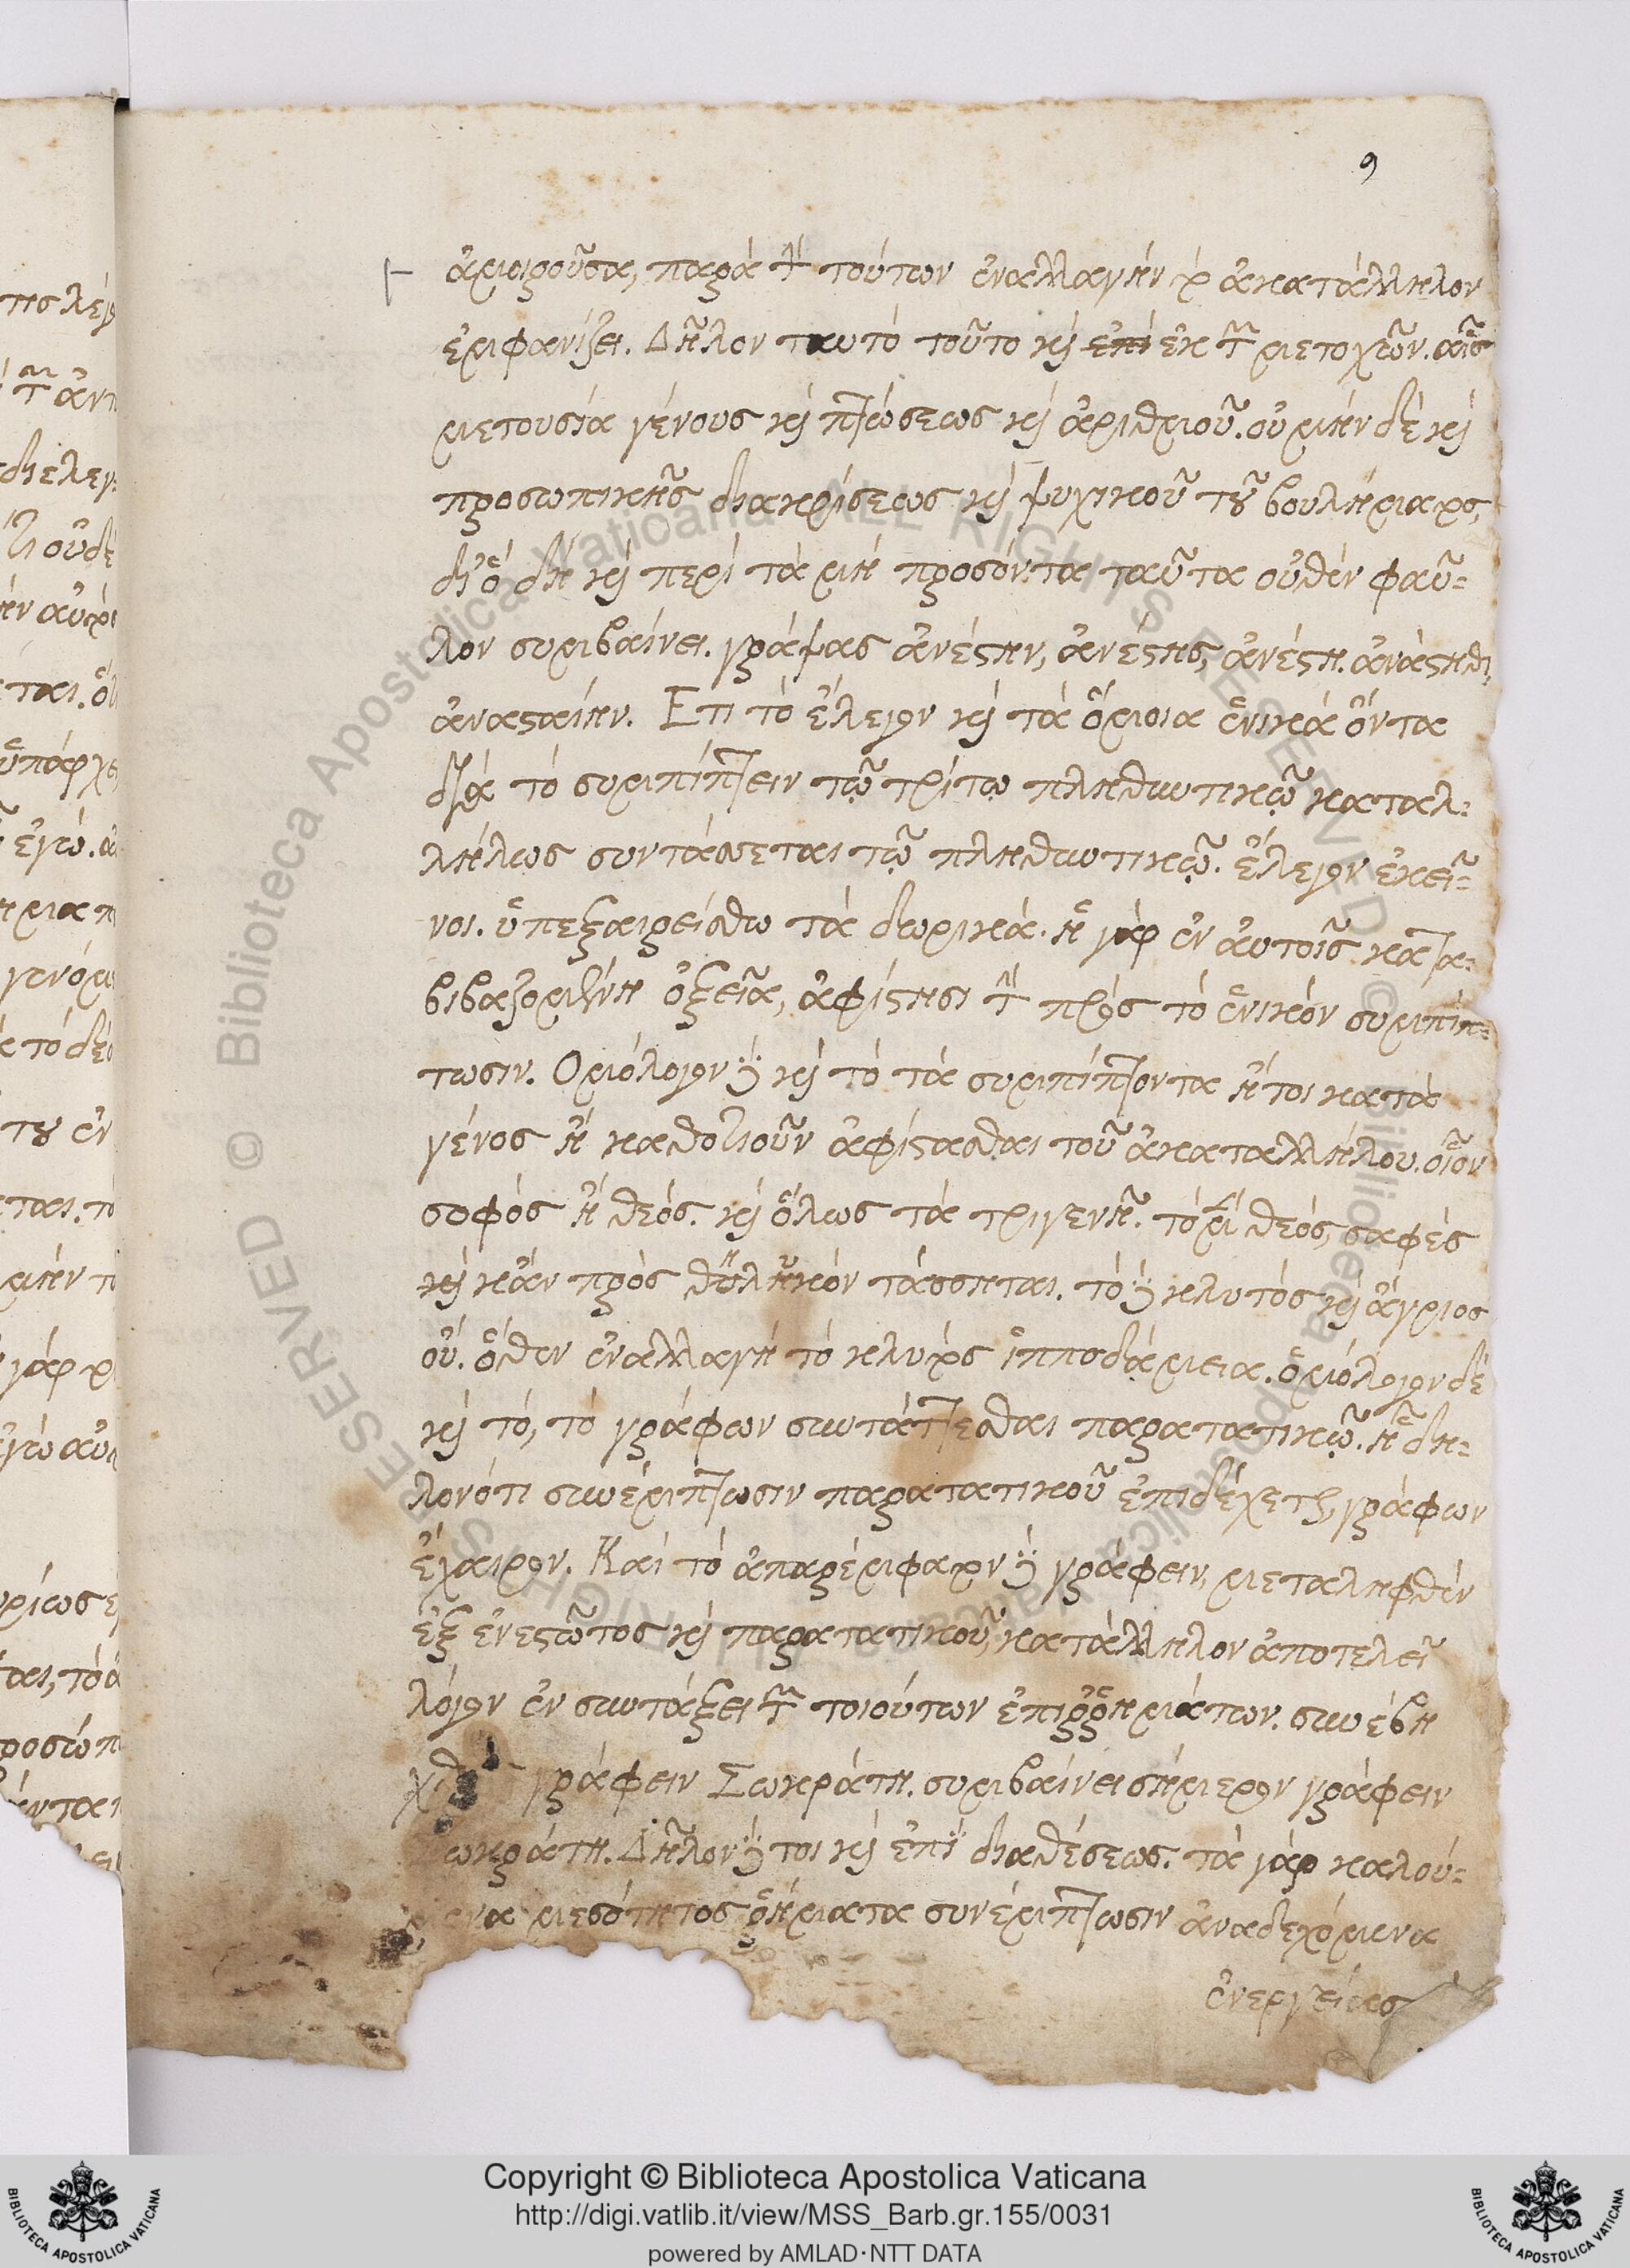 9
ἁρμοζοῦσα, παρὰ τὴν τούτων ἐναλλαγὴν τὸ ἀκατάλληλον
ἐμφανίζει. Δῆλον ταυτὸ τοῦτο καὶ ἐπὶ ἐκ τῶν μετοχῶν. αἷς
μετουσία γένους καὶ πτώσεως καὶ ἀριθμοῦ. οὐ μὴν δὲ καὶ
προσωπικῆς διακρίσεως καὶ ψυχικοῦ τοῦ βουλήματος,
δι' ὃ δὴ καὶ περὶ τὰ μὴ προσόντα ταῦτα οὐθὲν φαῦ-
λον συμβαίνει. γράψας ἀνέστην, ἀνέστης, ἀνέστη. ἀνάστηθι,
ἀνασταίην. Ετι τὸ ἔλεγον καὶ τὰ ὅμοια ἑνικὰ ὄντα
διὰ τὸ συμπίπτειν τῷ τρίτῳ πληθυντικῷ καταλ-
λήλως συντάσσεται τῷ πληθυντικῷ. ἔλεγον ἐκεῖ-
νοι. ὑπεξαιρείσθω τὰ δωρικά. ἡ γὰρ ἐν αὐτοῖς κατα-
βιβαζομένη ὀξεῖα, ἀφίστησι τὴν πρὸς τὸ ἑνικὸν συμπίπ-
τωσιν. Ομόλογον δὲ καὶ τὸ τὰ συμπίπτοντα ἤτοι κατὰ
γένος ἢ καθοτιοῦν ἀφίστασθαι τοῦ ἀκαταλλήλου. οἷον
σοφὸς ἢ θεός. καὶ ὅλως τὰ τριγενῆ. τὸ μὲν θεός, σαφὲς
καὶ κἂν πρὸς θηλυκὸν τάσσηται. τὸ δὲ κλυτὸς καὶ ἄγριος
οὔ. ὅθεν ἐναλλαγὴ τὸ κλυτὸς ἱπποδάμεια. ὁμόλογον δὲ
καὶ τό, τὸ γράφων συντάττεσθαι παρατατικῷ. ᾗ δη-
λονότι συνέμπτωσιν παρατατικοῦ ἐπιδέχεται, γράφων
ἔχαιρον. Καὶ τὸ ἀπαρέμφατον δὲ γράφειν, μεταληφθὲν
ἐξ ἐνεστῶτος καὶ παρατατικοῦ, κατάλληλον ἀποτελεῖ
λόγον ἐν συντάξει τῶν τοιούτων ἐπιῤῥημάτων. συνέβη
χθὲς γράφειν Σωκράτη. συμβαίνει σήμερον γράφειν
Σωκράτη. Δῆλον δέ τοι καὶ ἐπὶ διαθέσεως. τὰ γὰρ καλού-
μενα μεσότητος ῥήματα συνέμπτωσιν ἀναδεχόμενα
ἐνεργείας
Copyright © Biblioteca Apostolica Vaticana
http://digi.vatlib.it/view/MSS_Barb.gr.155/0031
powered by AMLAD·NTT DATA